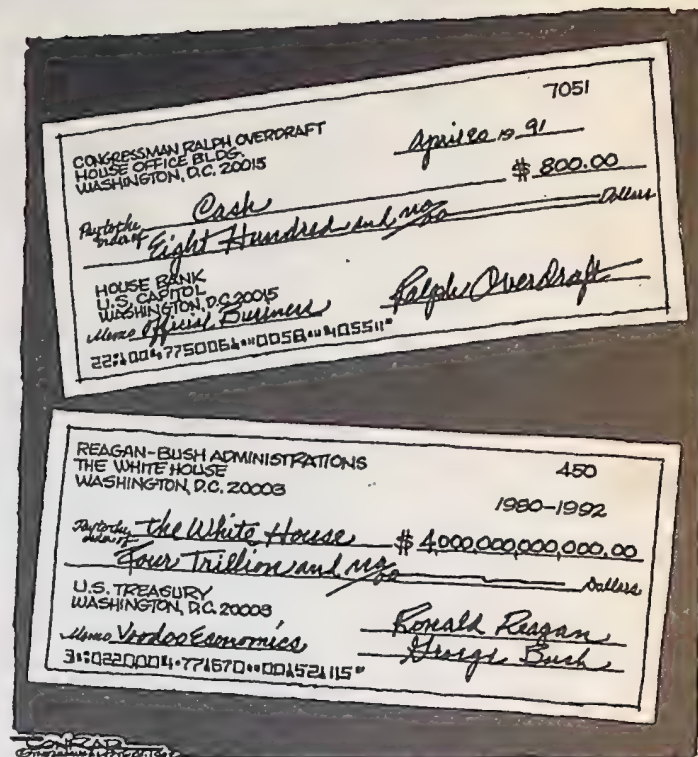 7051
CONGRESSMAN RALPH OVERDRAFT
HOUSE OFFICE BLDG.
WASHINGTON, D.C. 20015
April 20 19 91
$ 800.00
Pay to the
order of Cash
Eight Hundred and no/00 Dollars
HOUSE BANK
U.S. CAPITOL
WASHINGTON, D.C. 20015
Memo Official Business
Ralph OverDraft
REAGAN-BUSH ADMINISTRATIONS
THE WHITE HOUSE
WASHINGTON, D.C. 20003
450
1980-1992
Pay to the
order of the White House $ 4,000,000,000,000.00
Four Trillion and no/00 Dollars
U.S. TREASURY
WASHINGTON, D.C. 20003
Memo Voodoo Economics
Ronald Reagan
George Bush
CONRAD